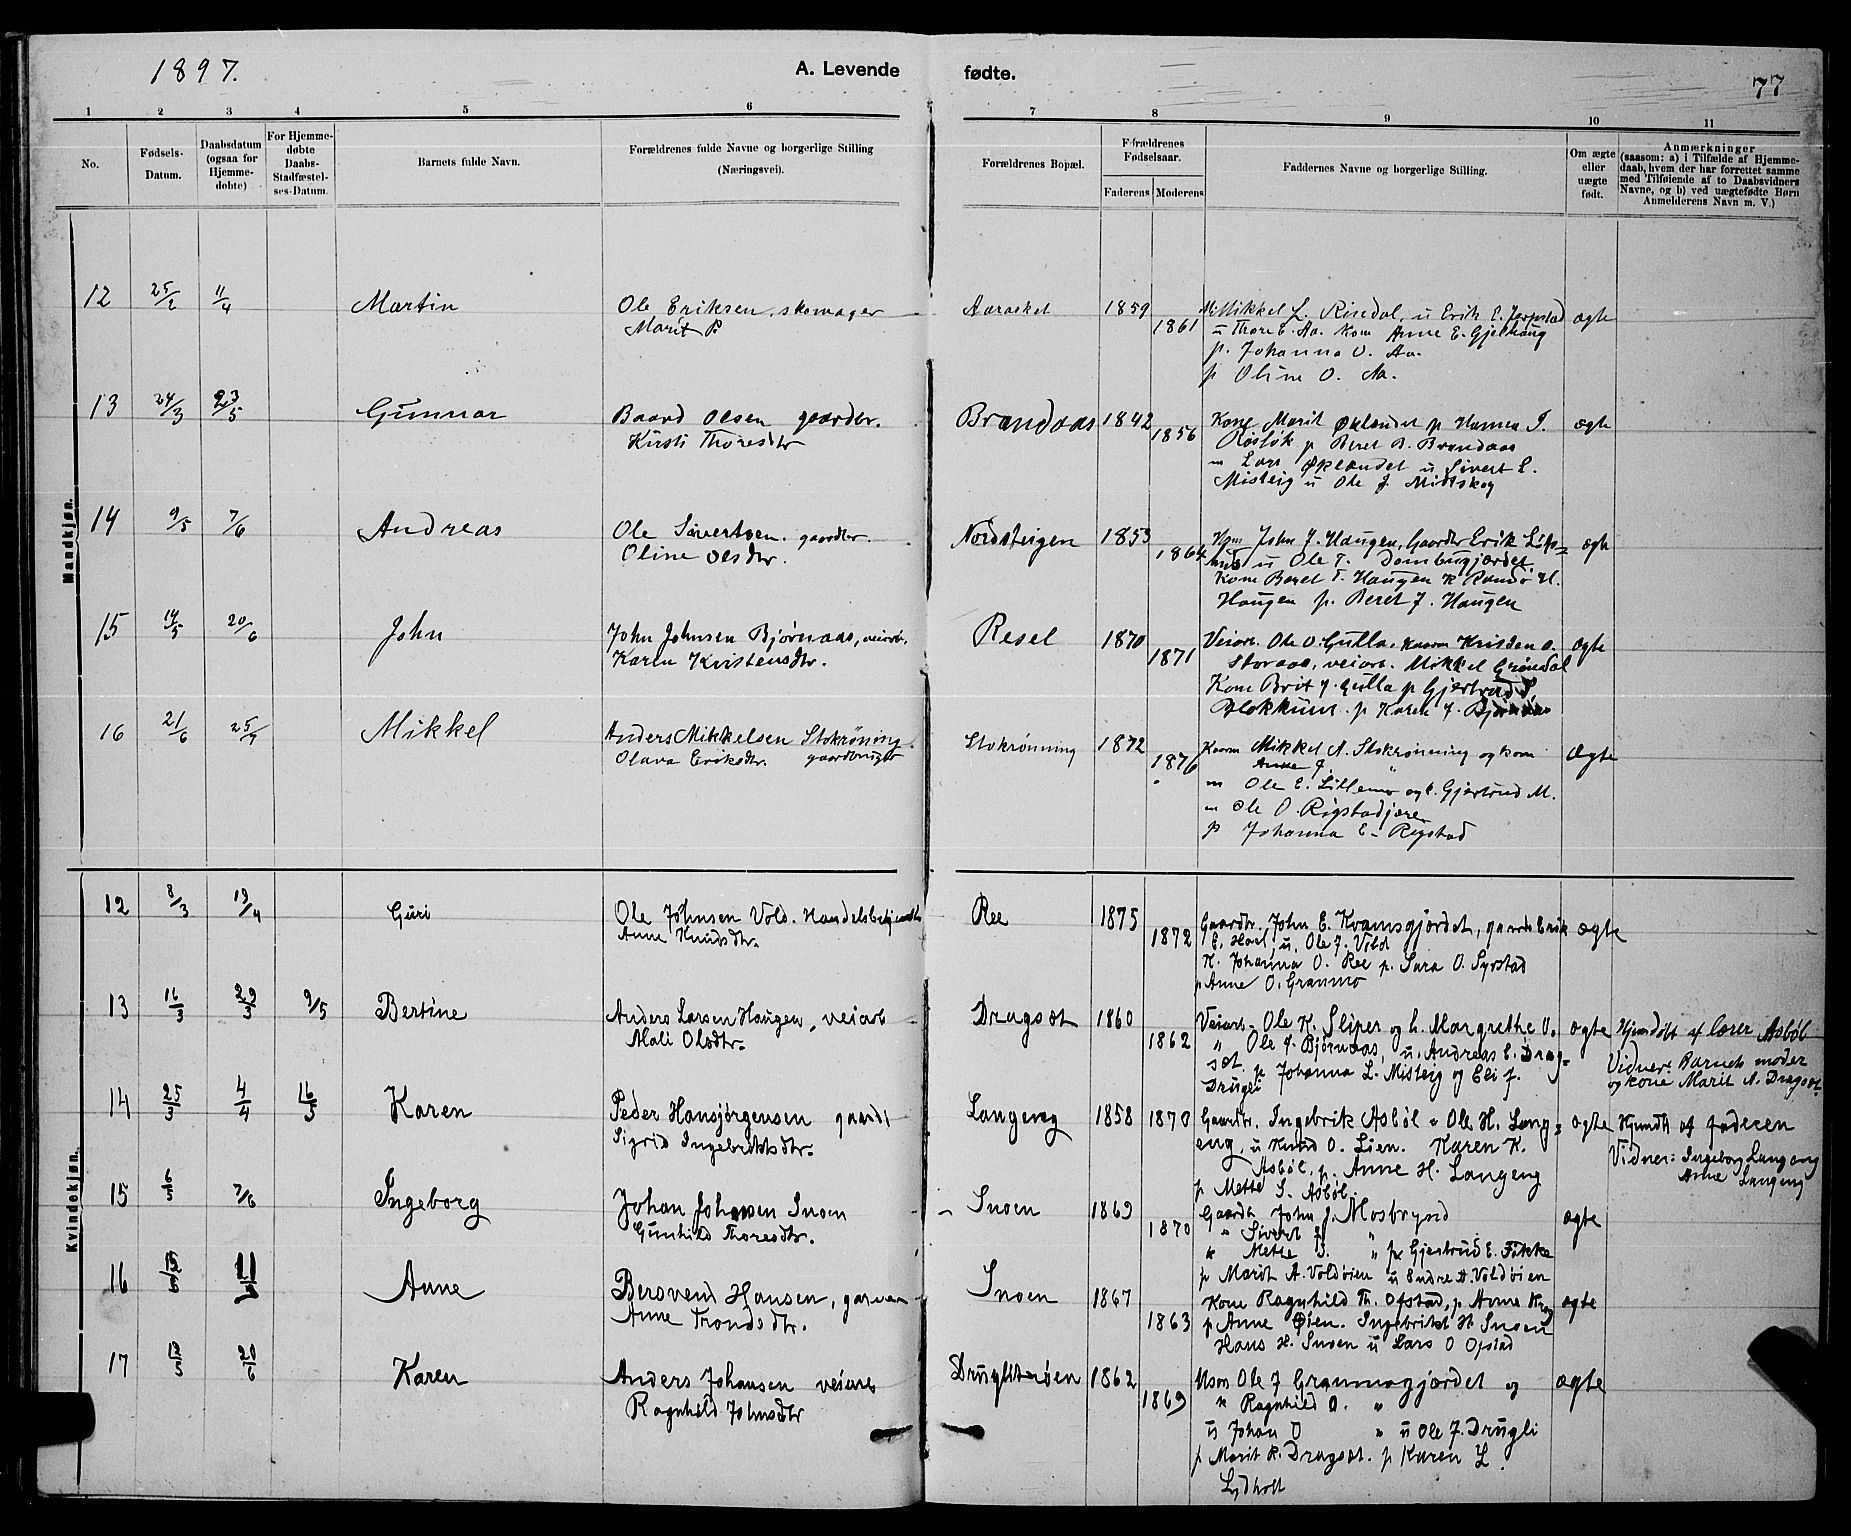 1897.
A. Levende
fødte.
77
1 2 3 4 5 6 7 8 9 10 11
No.
Fødsels-
Datum.
Daabsdatum
(ogsaa for
Hjemme-
døbte)
For Hjemme-
døbte
Daabs-
Stadfæstel-
ses-Datum.
Barnets fulde Navn.
Forældrenes fulde Navne og borgerlige Stilling
(Næringsvei).
Forældrenes Bopæl.
Forældrenes
Fødselsaar.
Faderens Moderens
Faddernes Navne og borgerlige Stilling.
Om ægte
eller
uægte
født.
Anmærkninger
(saasom: a) i Tilfælde af Hjemme-
daab, hvem der har forrettet samme
med Tilføiende af to Daabsvidners
Navne, og b) ved uægtefødte Børn
Anmelderens Navn m. V.)
Mandkjøn.
12 25/2 11/4 Martin Ole Eriksen skomager 1859 Mikkel L. Risedal, u Erik E.
Marit P 1861 ægte
u Thore E. Aa. Kone Anne E. Gjelhaug
p. Johanna O. Aa.
p Oline O. Aa.
13 24/3 23/5 Gunnar Baard Olsen gaardbr. Brandaas 1842 Kone Marit Øklandet p Hanna J.
Kirsti Thoresdtr 1856 ægte
p Beret B. Brandaas
m Lars Øklandet u Sivert L.
Misteig u Ole J. Midtskog
14 9/5 7/6 Andreas Ole Sivertsen gaardbr. Nordsteigen 1853 John J. Haugen, Gaardbr Erik
Oline Olsdtr. 1864 u Ole T. ægte
Kone Beret T. Haugen K Randi H.
Haugen p. Beret J. Haugen
15 14/5 20/6 John John Johnsen Bjørnaas, veiarb. Resel 1870 Veiarb. Ole O. Gulla, Kristen O.
Karen Kristensdtr. 1871 ægte
Storaas, veiarb. Mikkel Grindal
Kone Brit J. Gulla p Gjertrud
Blokkum p Karen J. Bjørnaas
16 21/6 25/7 Mikkel Anders Mikkelsen Stokrønning Stokrønning 1872 Mikkel A. Stokrønning og kone
Olava Eriksdtr. gaardbruger 1876 Anne J. Ægte
m Ole E. Lillemo og k. Gjertrud M.
m Ole O. Rigstadjære
p Johanna E. Rigstad
Kvindekjøn.
12 8/3 19/4 Guri Ole Johnsen Vold. Handelsbetjent Ree 1875 Gaardbr. John E. Kvamsgjærdet, gaardb Erik
Anne Knudsdtr. 1872 E. Hoel, u. Ole J. Vold ægte
K. Johanna O. Ree p. Sara O. Syrstad
p Anne O. Granmo
13 16/3 29/3 9/5 Bertine Anders Larsen Haugen, veiarb Dragset 1860 Veiarb. Ole K. Sliper og k. Margrethe O.
Mali Olsdtr. 1862 " Ole J. Bjørnaas, u. Andreas E. Drag-
set p Johanna L. Misteig og Eli J.
Drugli
ægte Hjemdøbt af lærer Asbøl
Vidner: Barnets moder
og kone Marit A. Dragset.
14 25/3 4/4 16/5 Karen Peder Hansjørgensen gaardb Langeng 1858 1870 Gaardbr. Ingebrik Asbøl " Ole H. Lang-
Sigrid Ingebriktsdtr. eng, u Knud O. Lien. Karen K.
Asbøl, p. Anne H. Langeng
p Mette S. Asbøl
ægte Hjemdb af faderen
Vidner: Ingeborg Langeng
Anne Langeng
15 6/5 7/6 Ingeborg Johan Johansen Snoen Snoen 1869 Gaardb John J. Mosbrynd
Gunhild Thoresdtr. 1870 " Sivert J. " ægte
K Mette J. " p Gjertrud E. Fikke
p Marit A. Voldøien u Endre A. Voldøien
16 Anne Bersvend Hansen, garver Snoen 1867 Kone Ragnhild Th. Opstad, p Anne Krog
Anne Trondsdtr. 1863 p Anne Øien. Ingebrikt H Snoen
Hans H. Snoen u Lars O Opstad
ægte
17 20/6 Karen Anders Johansen veiarb 1862 Ole J Granmogjærdet og
Ragnhild Johnsdtr 1869 K Ragnhild O. "
u Johan O " u Ole J. Drugli
p Marit K. Dragset. p Karen L.
Lydholt
ægte